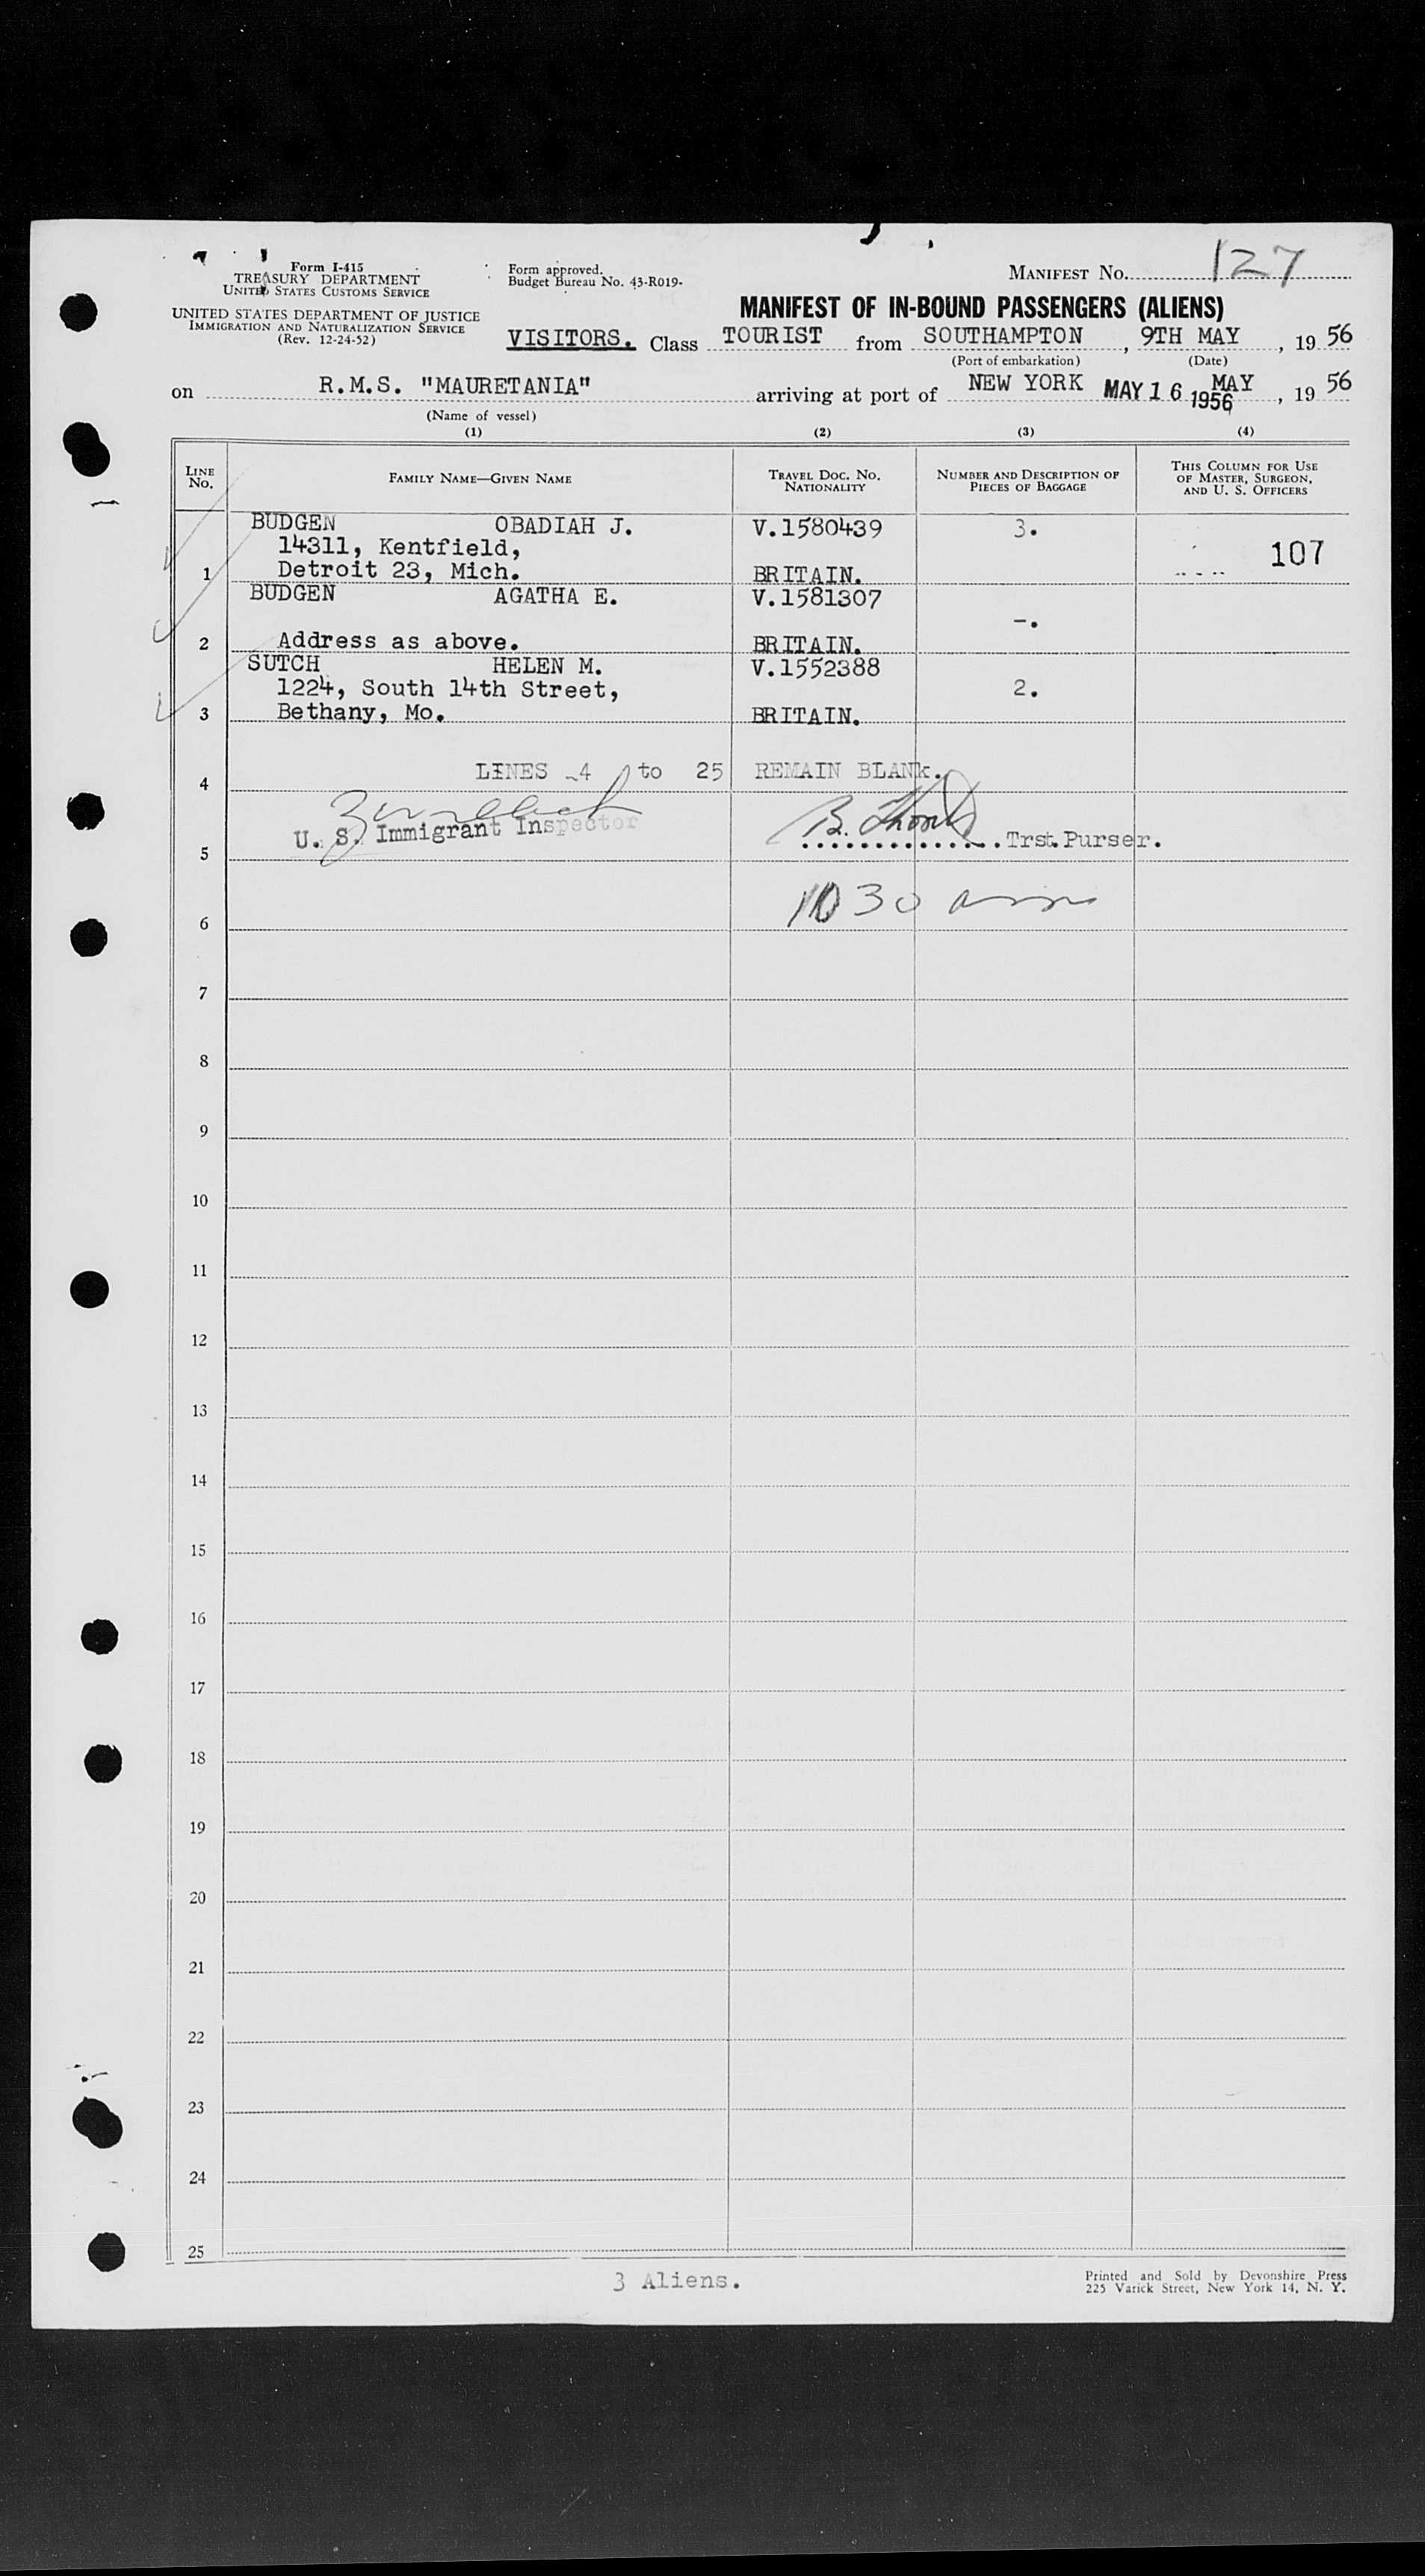 Form I-415
TREASURY DEPARTMENT
UNITED STATES CUSTOMS SERVICE
UNITED STATES DEPARTMENT OF JUSTICE
IMMIGRATION AND NATURALIZATION SERVICE
(Rev. 12-24-52)
Form approved.
Budget Bureau No. 43-R019-
MANIFEST NO. 127
MANIFEST OF IN-BOUND PASSENGERS (ALIENS)
VISITORS. Class TOURIST from SOUTHAMPTON, 9TH MAY, 19 56
(Port of embarkation) (Date)
on R.M.S. "MAURETANIA" arriving at port of NEW YORK MAY 16 1956 MAY, 19 56
(Name of vessel)
(1) (2) (3) (4)
LINE NO. FAMILY NAME—GIVEN NAME TRAVEL DOC. NO. NATIONALITY NUMBER AND DESCRIPTION OF PIECES OF BAGGAGE THIS COLUMN FOR USE OF MASTER, SURGEON, AND U. S. OFFICERS
BUDGEN OBADIAH J. V.1580439 3.
14311, Kentfield, 107
1 Detroit 23, Mich. BRITAIN.
BUDGEN AGATHA E. V.1581307
-.
2 Address as above. BRITAIN.
SUTCH HELEN M. V.1552388
1224, South 14th Street, 2.
3 Bethany, Mo. BRITAIN.
LINES 4 to 25 REMAIN BLANK.
4
U. S. Immigrant Inspector B. Trst.Purser.
5
10 30
6
7
8
9
10
11
12
13
14
15
16
17
18
19
20
21
22
23
24
25
3 Aliens.
Printed and Sold by Devonshire Press
225 Varick Street, New York 14, N. Y.